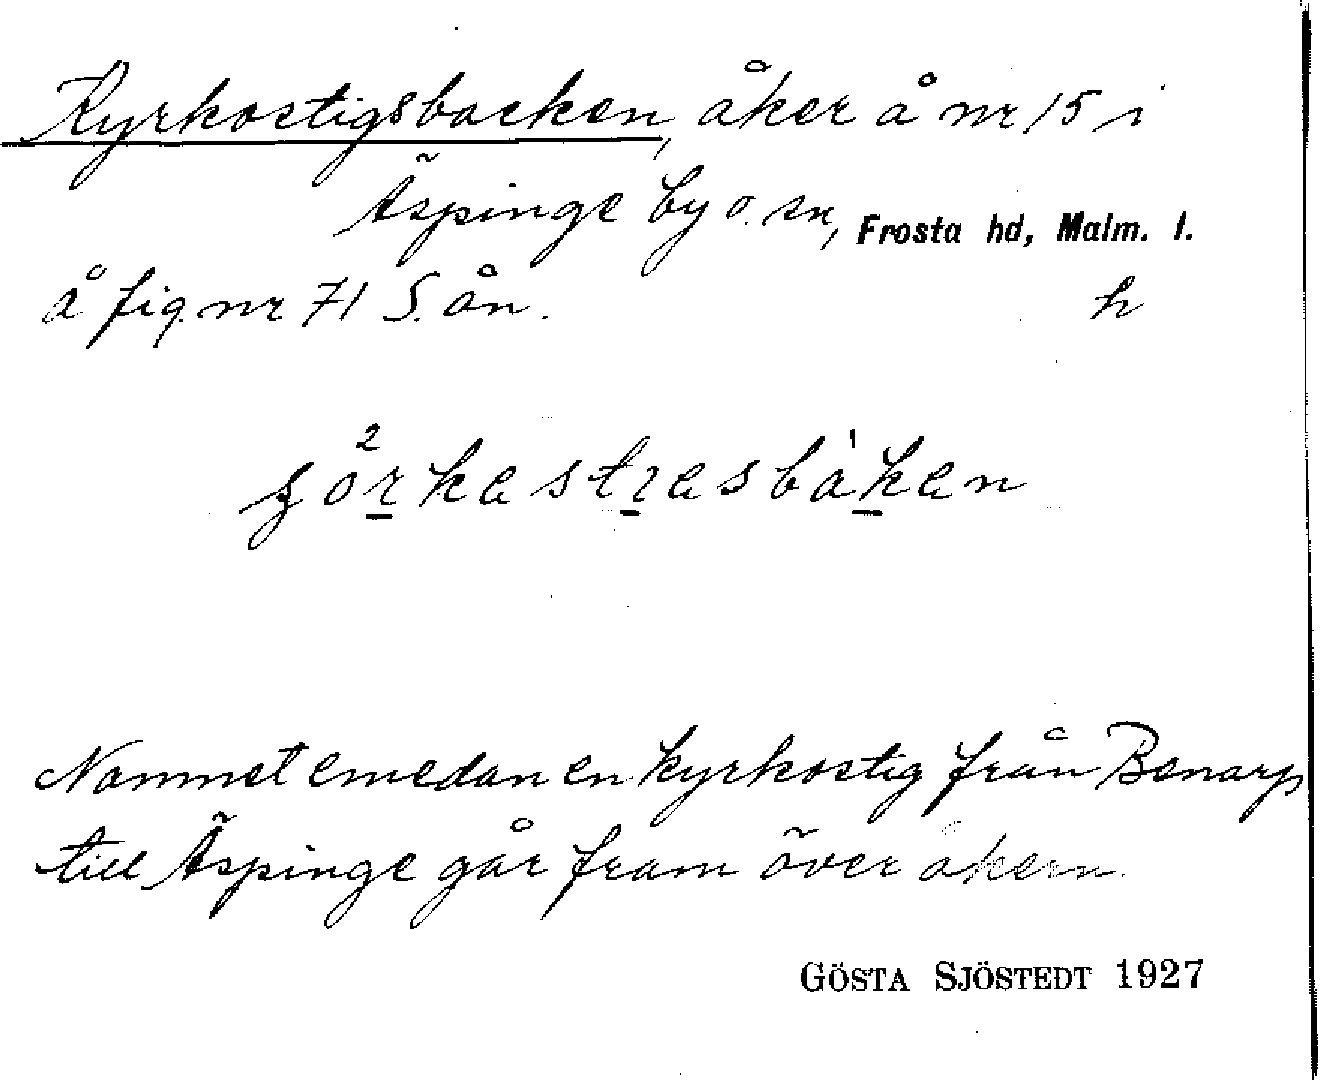 Kyrkostigsbacken, åker å nr 15 i
Äspinge by o. sn, Frosta hd, Malm. l.
å fig. nr 71 S. ån. h
Namnet emedan en kyrkostig från Benarp
till Äspinge går fram över åkern.
GÖSTA SJÖSTEDT 1927